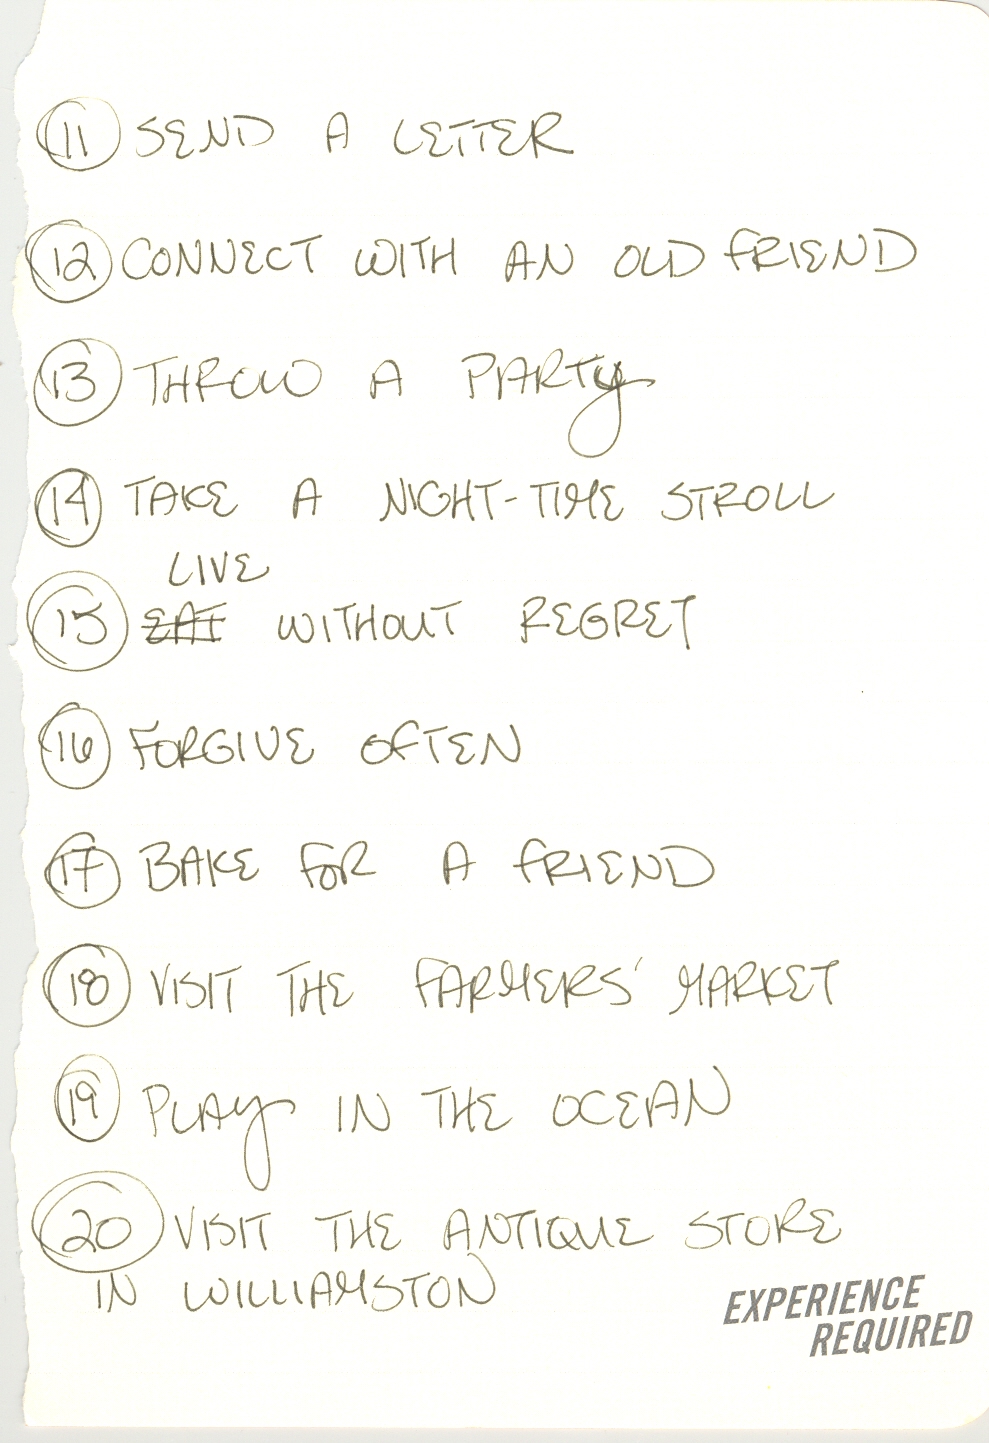 11 SEND A LETTER
12 CONNECT WITH AN OLD FRIEND
13 THROW A PARTY
14 TAKE A NIGHT-TIME STROLL
LIVE
15 EAT WITHOUT REGRET
16 FORGIVE OFTEN
17 BAKE FOR A FRIEND
18 VISIT THE FARMERS' MARKET
19 PLAY IN THE OCEAN
20 VISIT THE ANTIQUE STORE
IN WILLIAMSTON
EXPERIENCE
REQUIRED